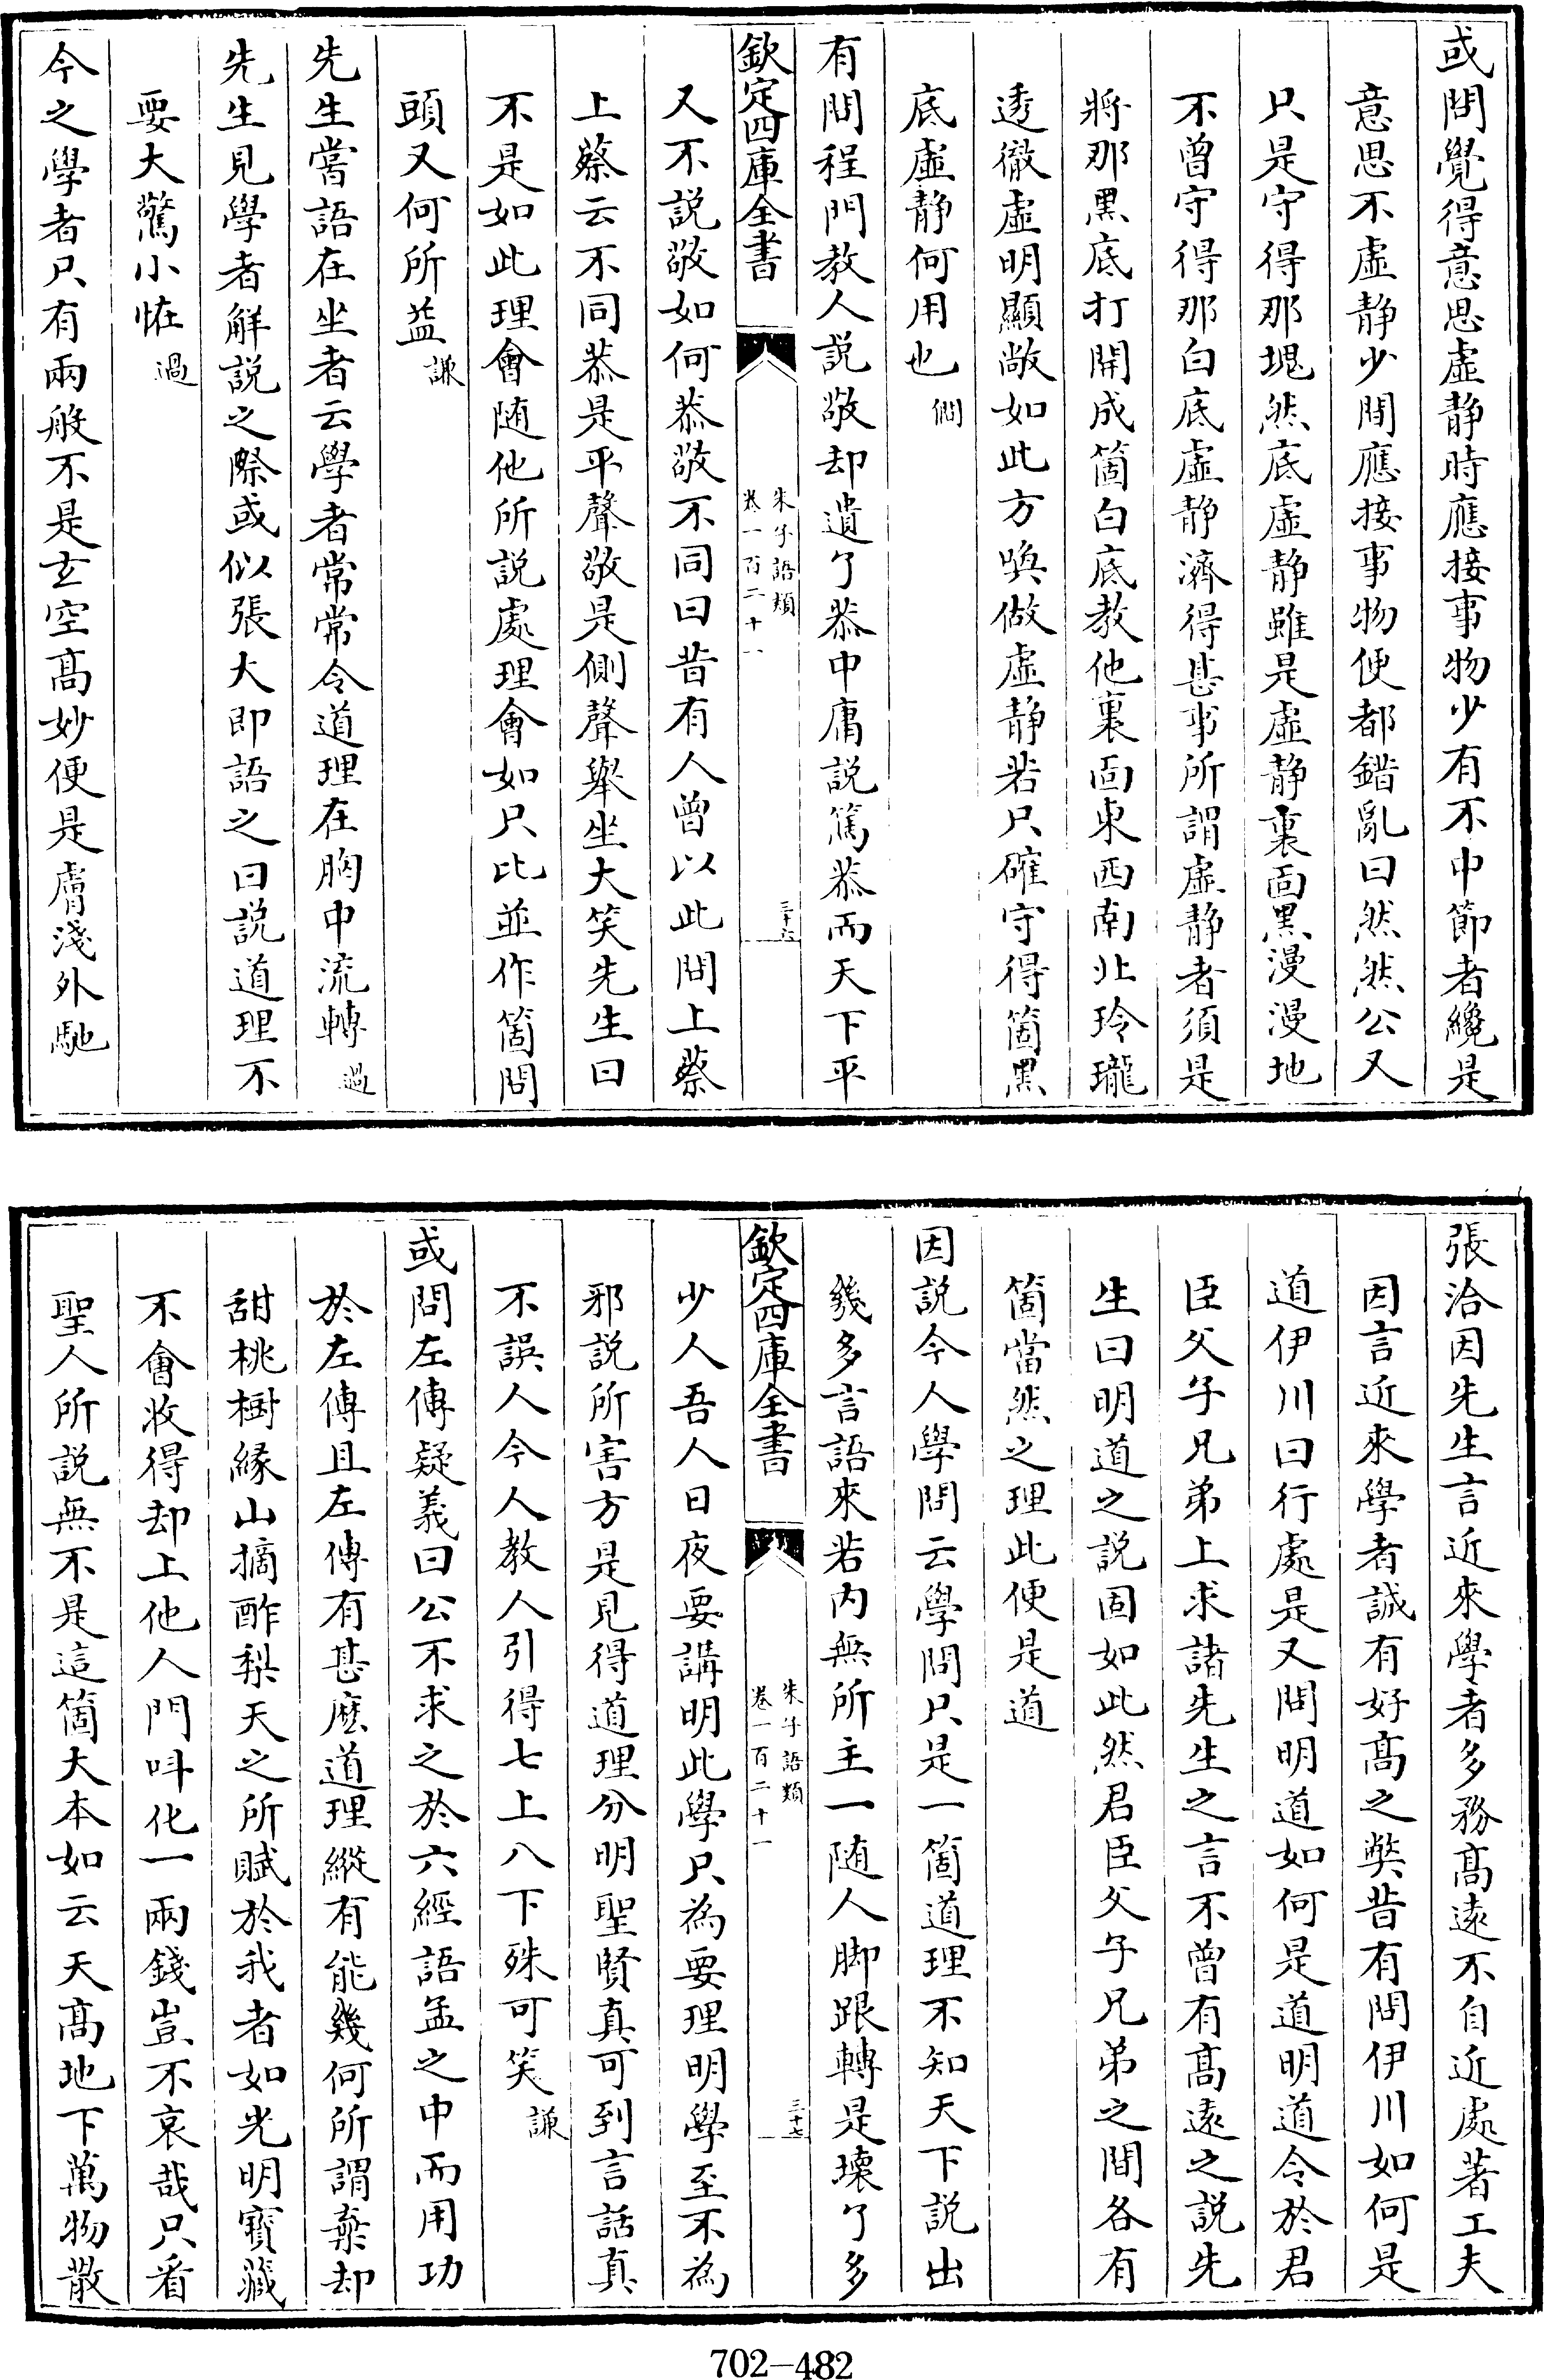 或問覺得意思虛静時應接事物少有不中節者纔是
意思不虛静少間應接事物便都錯亂曰然然公又
只是守得那塊然底虛静雖是虛静裏面黑漫漫地
不曾守得那白底虛静濟得甚事所謂虛静者須是
將那黑底打開成箇白底教他裏面東西南北玲瓏
透徹虛明顯敞如此方喚做虛静若只確守得箇黑
底虛静何用也 僩
有問程門教人説敬却遺了恭中庸説篤恭而天下平
欽定四庫全書
朱子語類
卷一百二十一
三十六
又不説敬如何恭敬不同曰昔有人曾以此問上蔡
上蔡云不同恭是平聲敬是側聲舉坐大笑先生曰
不是如此理會隨他所説處理會如只比並作箇問
頭又何所益 謙
先生嘗語在坐者云學者常常令道理在胸中流轉 過
先生見學者解説之際或似張大即語之曰説道理不
要大驚小怪 過
今之學者只有兩般不是玄空高妙便是膚淺外馳
張洽因先生言近來學者多務高遠不自近處著工夫
因言近來學者誠有好高之弊昔有問伊川如何是
道伊川曰行處是又問明道如何是道明道令於君
臣父子兄弟上求諸先生之言不曾有高遠之説先
生曰明道之説固如此然君臣父子兄弟之間各有
箇當然之理此便是道
因説今人學問云學問只是一箇道理不知天下説出
幾多言語來若内無所主一隨人脚跟轉是壞了多
欽定四庫全書
朱子語類
卷一百二十一
三十七
少人吾人日夜要講明此學只為要理明學至不為
邪説所害方是見得道理分明聖賢真可到言話真
不誤人今人教人引得七上八下殊可笑 謙
或問左傳疑義曰公不求之於六經語孟之中而用功
於左傳且左傳有甚麽道理縱有能幾何所謂棄却
甜桃樹緣山摘酢梨天之所賦於我者如光明寶藏
不會收得却上他人門呌化一兩錢豈不哀哉只看
聖人所説無不是這箇大本如云天高地下萬物散
702-482